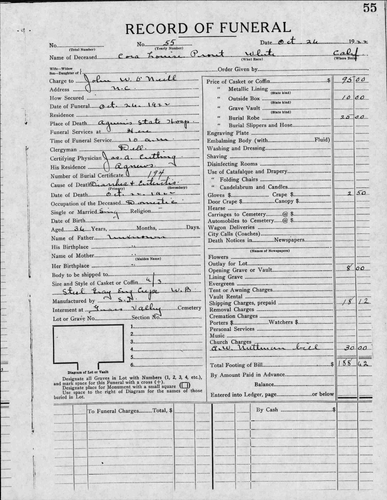 55
RECORD OF FUNERAL
No. No. 55 Date Oct 24 1922
(Total Number) (Yearly Number)
Name of Deceased Cora Louise Prout White Calif
(What Race) (Where Born)
Wife—Widow
Son—Daughter of
Charge to John W. O'Neill
Address N.C.
How Secured
Date of Funeral Oct. 24. 1922
Residence
Place of Death Agnews State Hosp.
Funeral Services at Here
Time of Funeral Service 10 a.m.
Clergyman
Certifying Physician Jas. A. Cutting
His Residence Agnews
Number of Burial Certificate 194
Cause of Death
Date of Death 1922
Occupation of Deceased Domestic
Single or Married Religion
Date of Birth
Aged 36 Years, Months, Days
Name of Father Unknown
His Birthplace "
Name of Mother "
(Maiden Name)
Her Birthplace "
Body to be shipped to
Size and Style of Casket or Coffin 6/3
Steel Gray W.B.
Manufactured by
Interment at Grass Valley Cemetery
Lot or Grave No. Section No.
1.
2.
3.
4.
5.
6.
Diagram of Lot or Vault
Designate all Graves in Lot with Numbers (1, 2, 3, 4, etc.),
and mark space for this Funeral with a cross (+).
Designate place for Monument with a small square
Use space to the right of Diagram for the names of those
buried in Lot.
Order Given by
Price of Casket or Coffin $ 95 00
" Metallic Lining
(State kind)
" Outside Box 10 00
(State kind)
" Grave Vault
(State kind)
" Burial Robe 25 00
" Burial Slippers and Hose
Engraving Plate
Embalming Body (with Fluid)
Washing and Dressing
Shaving
Disinfecting Rooms
Use of Catafalque and Drapery
" Folding Chairs
" Candelabrum and Candles
Gloves $ 2 50
Door Crape $ Canopy $
Hearse
Carriages to Cemetery @ $
Automobiles to Cemetery @ $
Wagon Deliveries
City Calls (Coaches)
Death Notices in Newspapers.
(Names of Newspapers)
Flowers
Outlay for Lot
Opening Grave or Vault 8 00
Lining Grave
Evergreen
Tent or Awning Charges
Vault Rental
Shipping Charges, prepaid 18 12
Removal Charges
Cremation Charges
Porters $ Watchers $
Personal Services
Music
Church Charges
30 00
Total Footing of Bill $ 188 62
By Amount Paid in Advance
Balance
Entered into Ledger, page or below.
To Funeral Charges, Total $ By Cash $